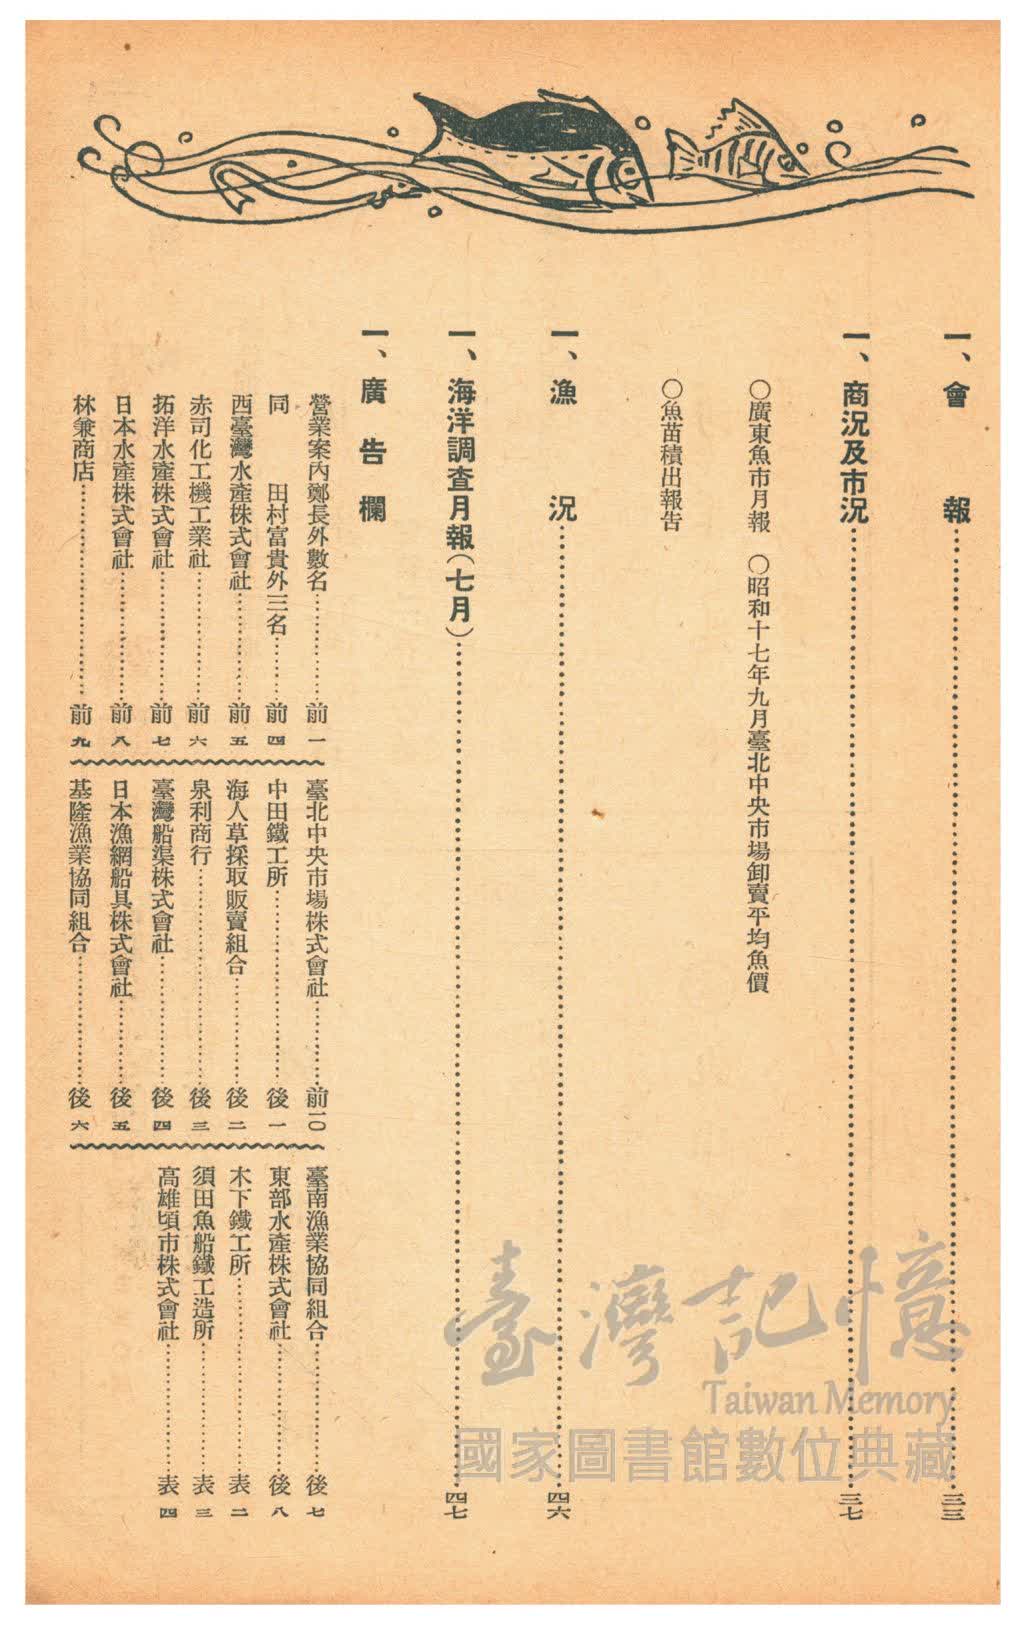 一、會報……三三
一、商況及市況……三七
〇廣東魚市月報 〇昭和十七年九月臺北中央市場卸賣平均魚價
〇魚苗積出報告
一、漁況……四六
一、海洋調査月報(七月)……四七
一、廣告欄
營業案內鄭長外數名……前一
同 田村富貴外三名……前四
西臺灣水產株式會社……前五
赤司化工機工業社……前六
拓洋水產株式會社……前七
日本水產株式會社……前八
林兼商店……前九
臺北中央市場株式會社……前一〇
中田鐵工所……後一
海人草採取販賣組合……後二
泉利商行……後三
臺灣船渠株式會社……後四
日本漁網船具株式會社……後五
基隆漁業協同組合……後六
臺南漁業協同組合……後七
東部水產株式會社……後八
木下鐵工所……表二
須田魚船鐵工造所……表三
高雄頃市株式會社……表四
臺灣記憶
Taiwan Memory
國家圖書館數位典藏